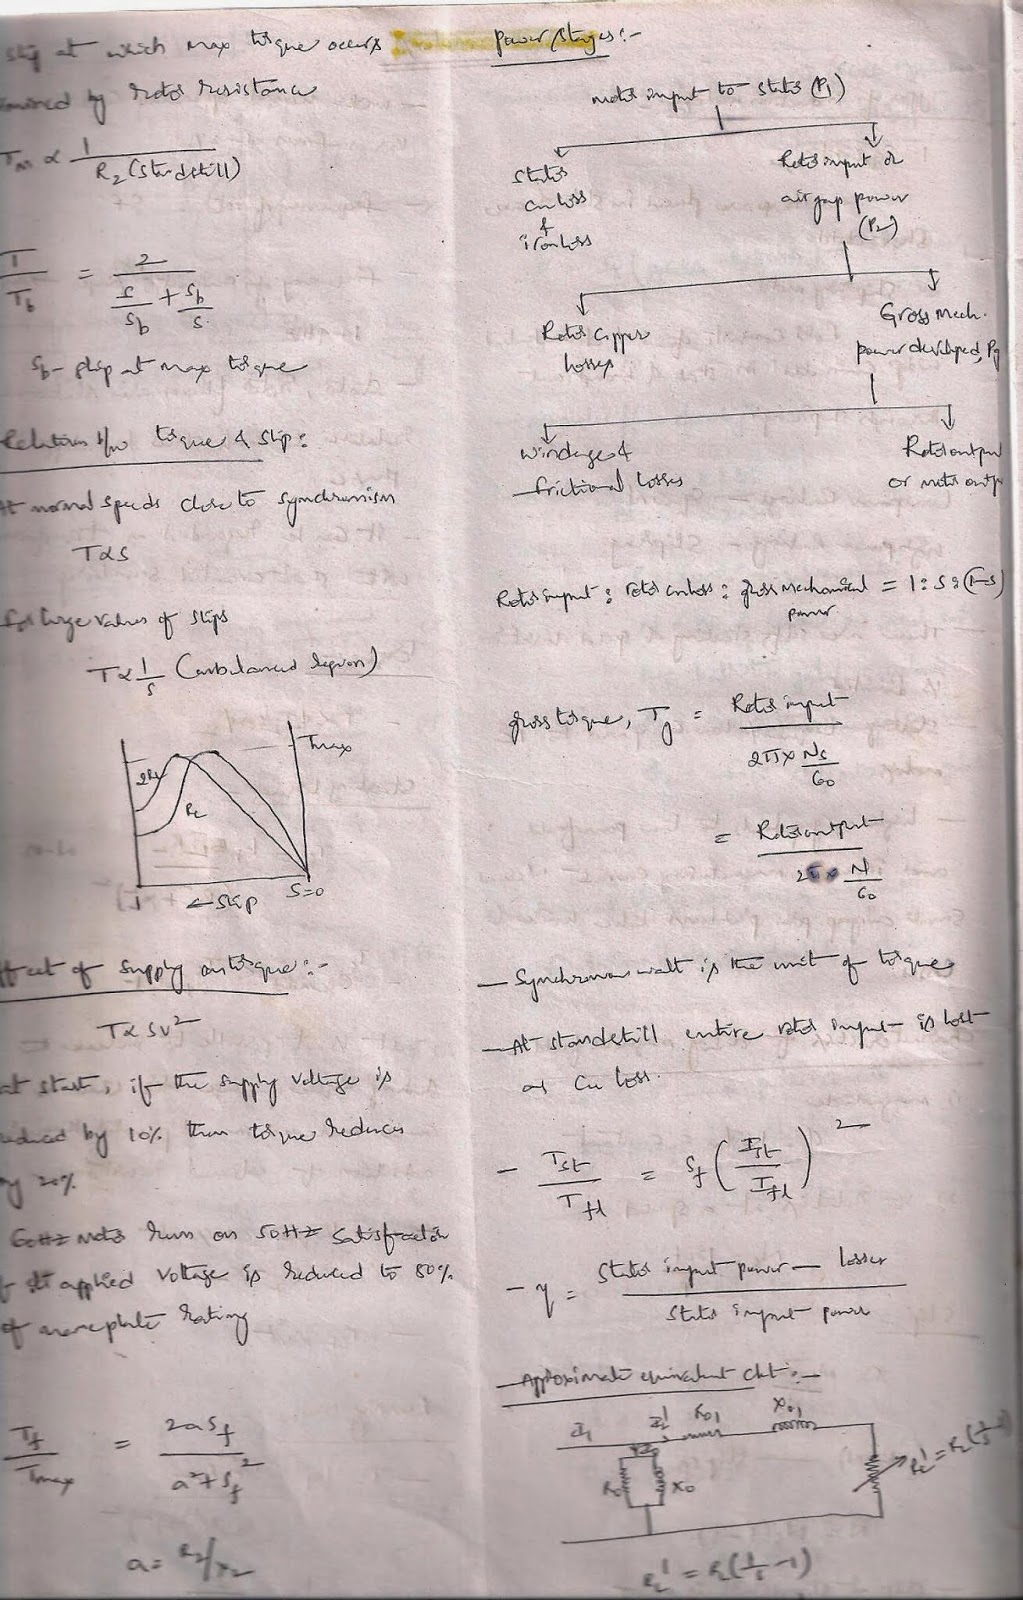 Slip at which max torque occurs
by rotor resistance
Tm ∝ 1 / R2 (standstill)
T / Tb = 2 / (s/sb + sb/s)
sb - slip at max torque
Relations b/w torque & slip:
At normal speeds close to synchronism
T∝S
for large values of slips
T∝ 1/s (unbalanced region)
Tmax
2R2
R2
1
←slip
S=0
effect of supply on torque:-
T∝ SV²
at start, if the supply voltage is
reduced by 10% then torque reduces
by 20%
60Hz Motor runs on 50Hz satisfactorily
if applied voltage is reduced to 80%
of nameplate rating
Tf / Tmax = 2aSf / (a²+Sf²)
a = R2/X2
power stages:-
motor input to stator (P1)
Stator
cu loss
&
iron loss
Rotor input or
airgap power
(P2)
Rotor Copper
losses
Gross Mech.
power developed, Pg
windage &
frictional losses
Rotor output
or motor output
Rotor input : rotor cu loss : gross mechanical power = 1 : s : (1-s)
gross torque, Tg = Rotor input / (2π × Ns/60)
= Rotor output / (2π × N/60)
- Synchronous watt is the unit of torque
- At standstill entire rotor input is lost
as Cu loss.
- Tst / Tfl = sf (Ist / Ifl)²
- η = Stator input power - losses / Stator input power
- Approximate equivalent ckt:-
I1
I2'
R01
X01
R0
X0
RL' = R2(1/s-1)
RL' = R2(1/s -1)